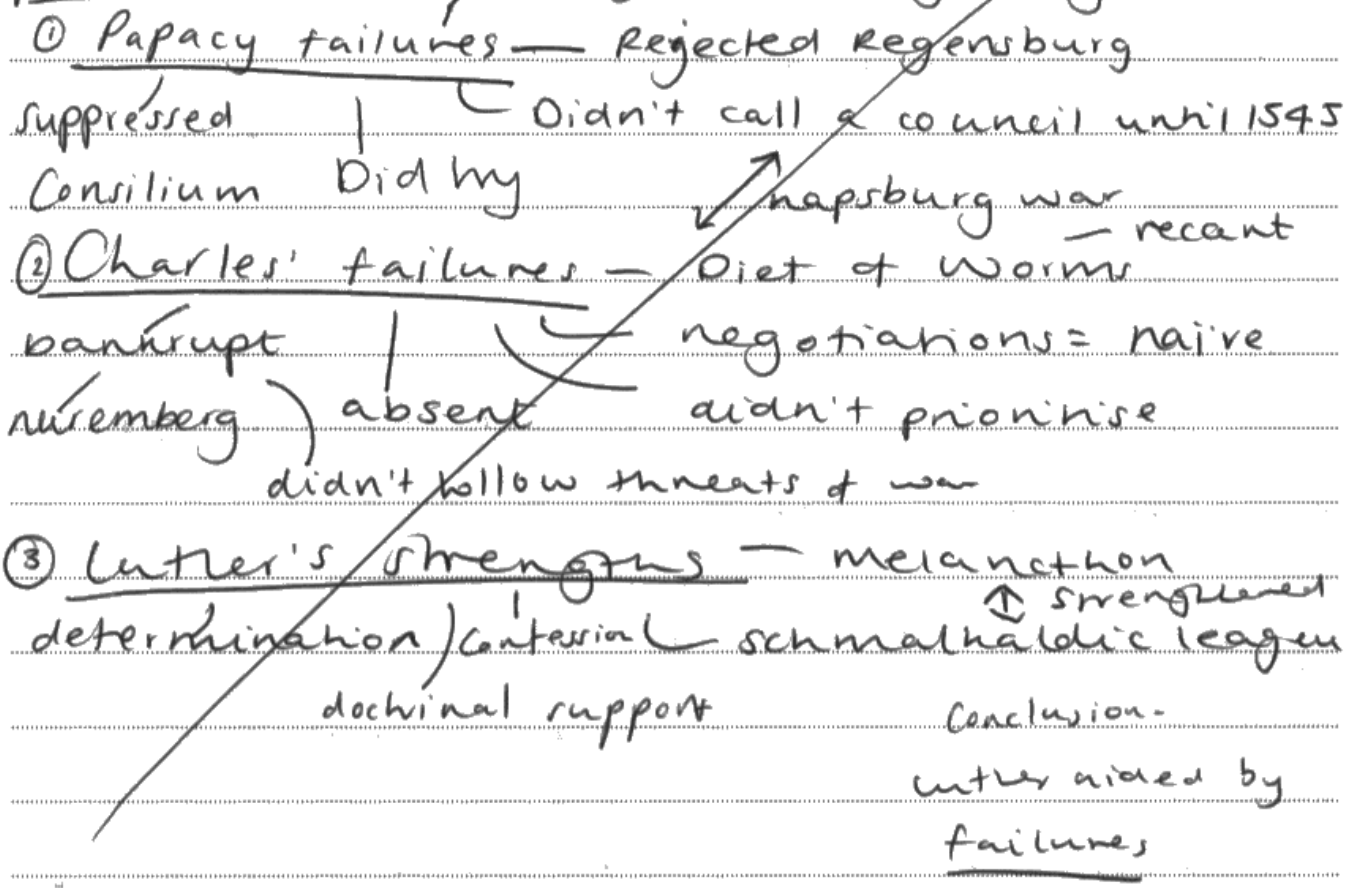 ① Papacy failures — Rejected Regensburg
suppressed Didn't call a council until 1545
Consilium Did try hapsburg war
— recant
② Charles' failures — Diet of Worms
bankrupt negotiations = naive
nuremberg absent didn't prioritise
didn't follow threats of war
③ Luther's strengths — melancthon
↑ strengthened
determination confession schmalhaldic league
doctrinal support Conclusion -
luther aided by
failures